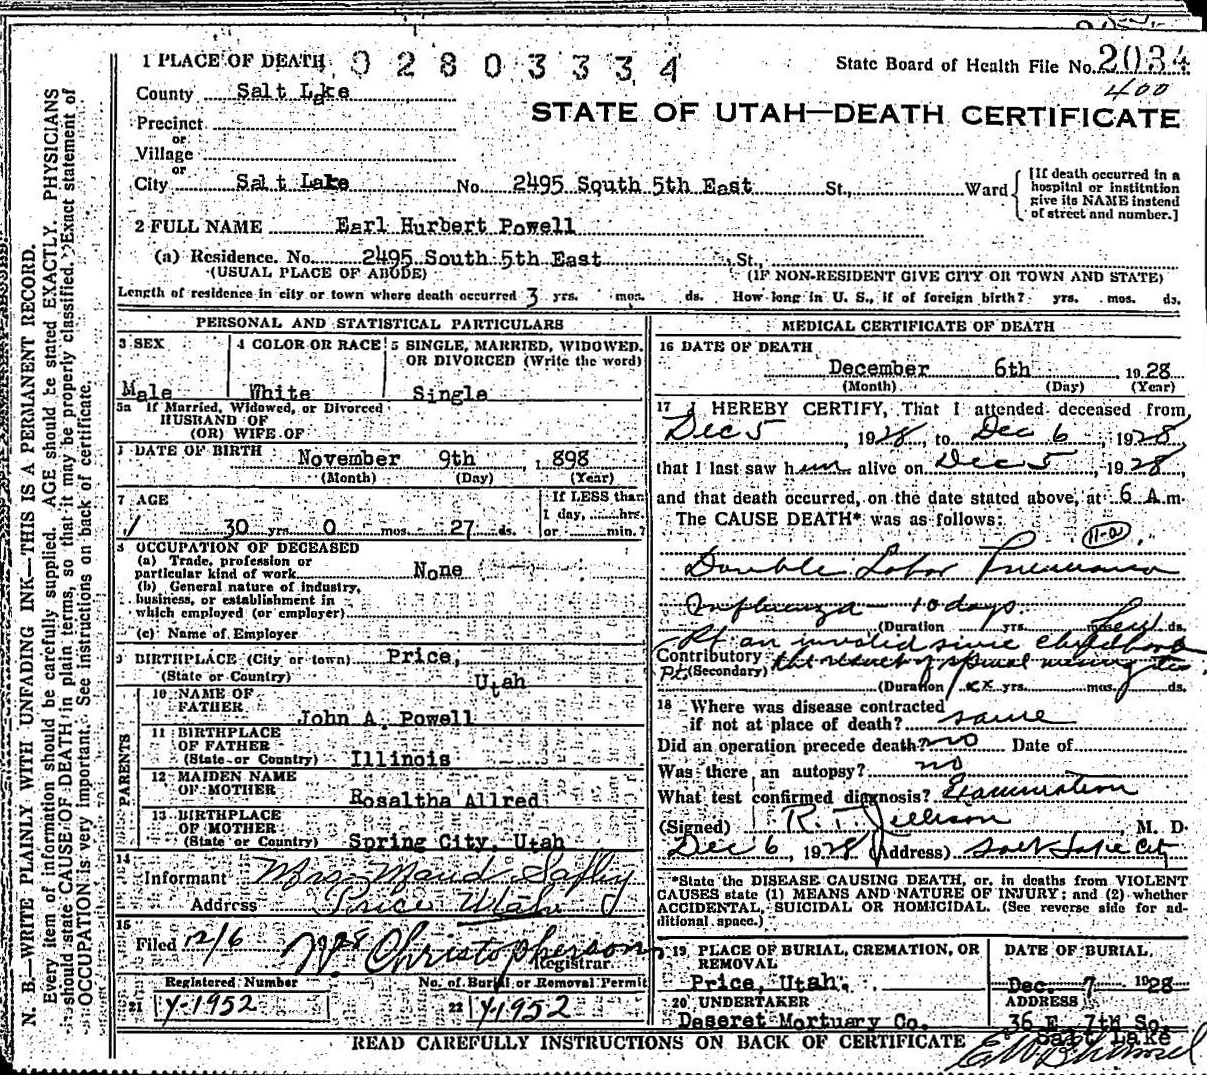 1 PLACE OF DEATH 02803334
State Board of Health File No. 2034
400
County Salt Lake
STATE OF UTAH—DEATH CERTIFICATE
Precinct
or
Village
or
City Salt Lake No. 2495 South 5th East St., Ward
[If death occurred in a hospital or institution give its NAME instead of street and number.]
2 FULL NAME Earl Hurbert Powell
(a) Residence. No. 2495 South 5th East St.,
(USUAL PLACE OF ABODE) (IF NON-RESIDENT GIVE CITY OR TOWN AND STATE)
Length of residence in city or town where death occurred 3 yrs. mos. ds. How long in U. S., if of foreign birth? yrs. mos. ds.
PERSONAL AND STATISTICAL PARTICULARS
3 SEX 4 COLOR OR RACE 5 SINGLE, MARRIED, WIDOWED, OR DIVORCED (Write the word)
Male White Single
5a If Married, Widowed, or Divorced
HUSBAND OF
(OR) WIFE OF
DATE OF BIRTH November 9th, 1898
(Month) (Day) (Year)
7 AGE If LESS than
1 day, hrs.
30 yrs. 0 mos. 27 ds. or min.?
8 OCCUPATION OF DECEASED
(a) Trade, profession or
particular kind of work None
(b) General nature of industry,
business, or establishment in
which employed (or employer)
(c) Name of Employer
9 BIRTHPLACE (City or town) Price,
(State or Country) Utah
PARENTS
10 NAME OF
FATHER John A. Powell
11 BIRTHPLACE
OF FATHER
(State or Country) Illinois
12 MAIDEN NAME
OF MOTHER Rosaltha Allred
13 BIRTHPLACE
OF MOTHER
(State or Country) Spring City, Utah
14
Informant Mrs Maud Safley
Address Price Utah
15
Filed 12/6 1928 Christopherson
Registrar
Registered Number No. of Burial or Removal Permit
21 Y-1952 22 Y-1952
MEDICAL CERTIFICATE OF DEATH
16 DATE OF DEATH
December 6th 1928
(Month) (Day) (Year)
17 I HEREBY CERTIFY, That I attended deceased from
Dec 5, 1928, to Dec 6, 1928,
that I last saw him alive on Dec 5, 1928,
and that death occurred, on the date stated above, at 6 A.m.
The CAUSE DEATH* was as follows:
11-a
Double Lobar Pneumonia
Influenza — 10 days
(Duration yrs. ds.
Pt an invalid since childhood
Contributory the result of spinal meningitis
(Secondary)
(Duration yrs. mos. ds.
18 Where was disease contracted
if not at place of death? same
Did an operation precede death? no Date of
Was there an autopsy? no
What test confirmed diagnosis? Examination
(Signed) R. T. Jellison, M. D.
Dec 6, 1928 (Address) Salt Lake City
*State the DISEASE CAUSING DEATH, or, in deaths from VIOLENT
CAUSES state (1) MEANS AND NATURE OF INJURY; and (2) whether
ACCIDENTAL, SUICIDAL OR HOMICIDAL. (See reverse side for ad-
ditional space.)
19 PLACE OF BURIAL, CREMATION, OR REMOVAL DATE OF BURIAL
Price, Utah. Dec. 7 1928
20 UNDERTAKER ADDRESS
Deseret Mortuary Co. 36 E. 7th So.
Salt Lake
READ CAREFULLY INSTRUCTIONS ON BACK OF CERTIFICATE
N. B.—WRITE PLAINLY WITH UNFADING INK—THIS IS A PERMANENT RECORD.
Every item of information should be carefully supplied. AGE should be stated EXACTLY. PHYSICIANS
should state CAUSE OF DEATH in plain terms, so that it may be properly classified. Exact statement of
OCCUPATION is very important. See instructions on back of certificate.